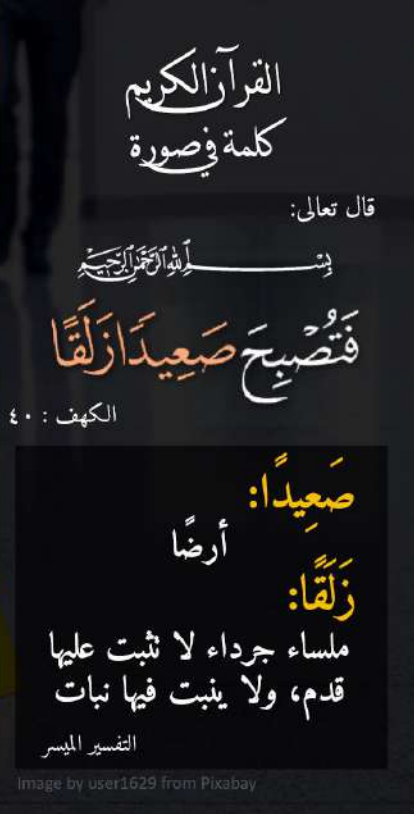 القرآن الكريم
كلمة في صورة
قال تعالى:
بِسْمِ ٱللَّهِ ٱلرَّحْمَٰنِ ٱلرَّحِيمِ
فَتُصْبِحَ صَعِيدًا زَلَقًا
الكهف : ٤٠
صَعِيدًا:
أرضًا
زَلَقًا:
ملساء جرداء لا تثبت عليها
قدم، ولا ينبت فيها نبات
التفسير الميسر
Image by user1629 from Pixabay